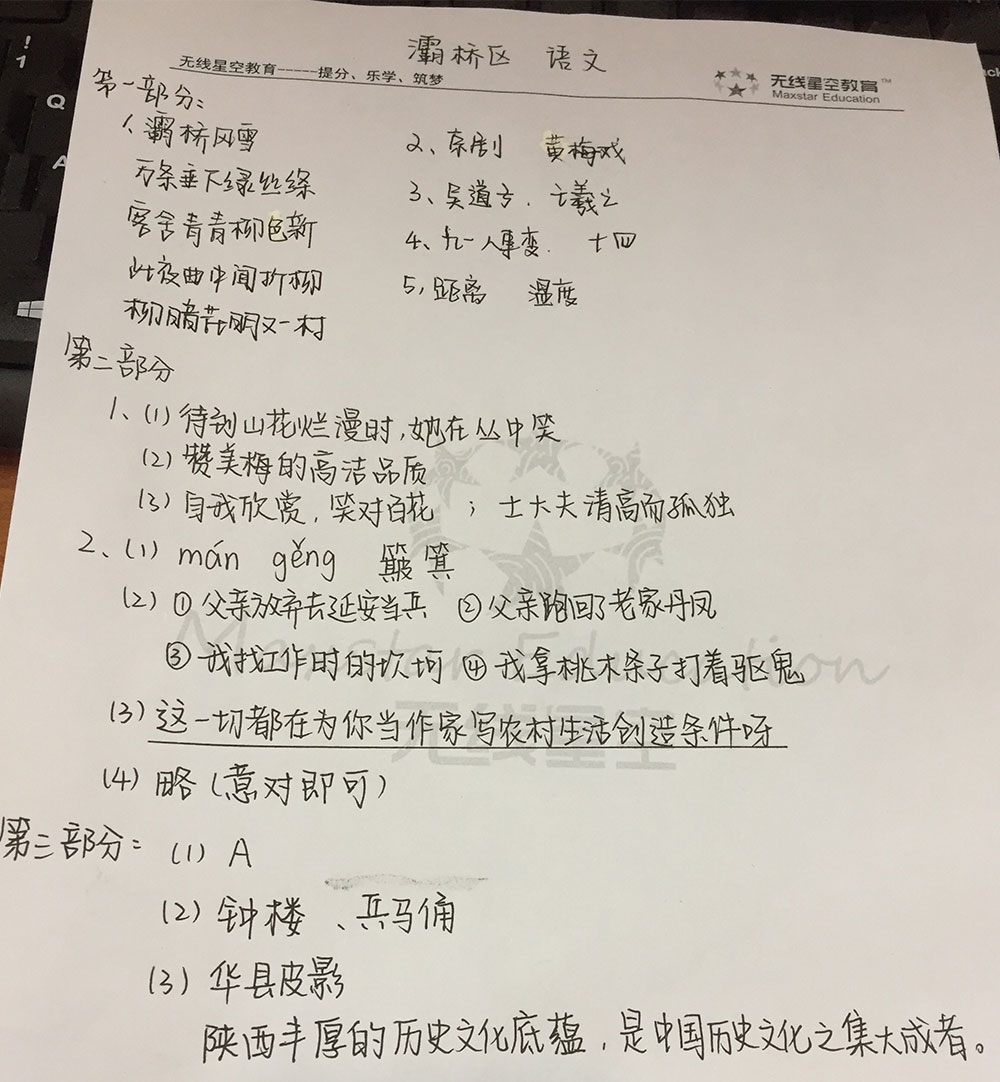 灞桥区 语文
无线星空教育-----提分、乐学、筑梦
无线星空教育™
Maxstar Education
第一部分:
1、灞桥风雪
万条垂下绿丝绦
客舍青青柳色新
此夜曲中闻折柳
柳暗花明又一村
2、京剧 黄梅戏
3、吴道子. 王羲之
4、九一八事变. 十四
5、距离 温度
第二部分
1、(1) 待到山花烂漫时,她在丛中笑
(2) 赞美梅的高洁品质
(3) 自我欣赏,笑对百花 ; 士大夫清高而孤独
2、(1) mán gěng 簸箕
(2) ① 父亲放弃去延安当兵 ② 父亲跑回了老家丹凤
③ 我找工作时的坎坷 ④ 我拿桃木条子打着驱鬼
(3) 这一切都在为你当作家写农村生活创造条件呀
(4) 略(意对即可)
Maxstar Education
无线星空
第三部分: (1) A
(2) 钟楼、兵马俑
(3) 华县皮影
陕西丰厚的历史文化底蕴,是中国历史文化之集大成者。
! 1
Q
A